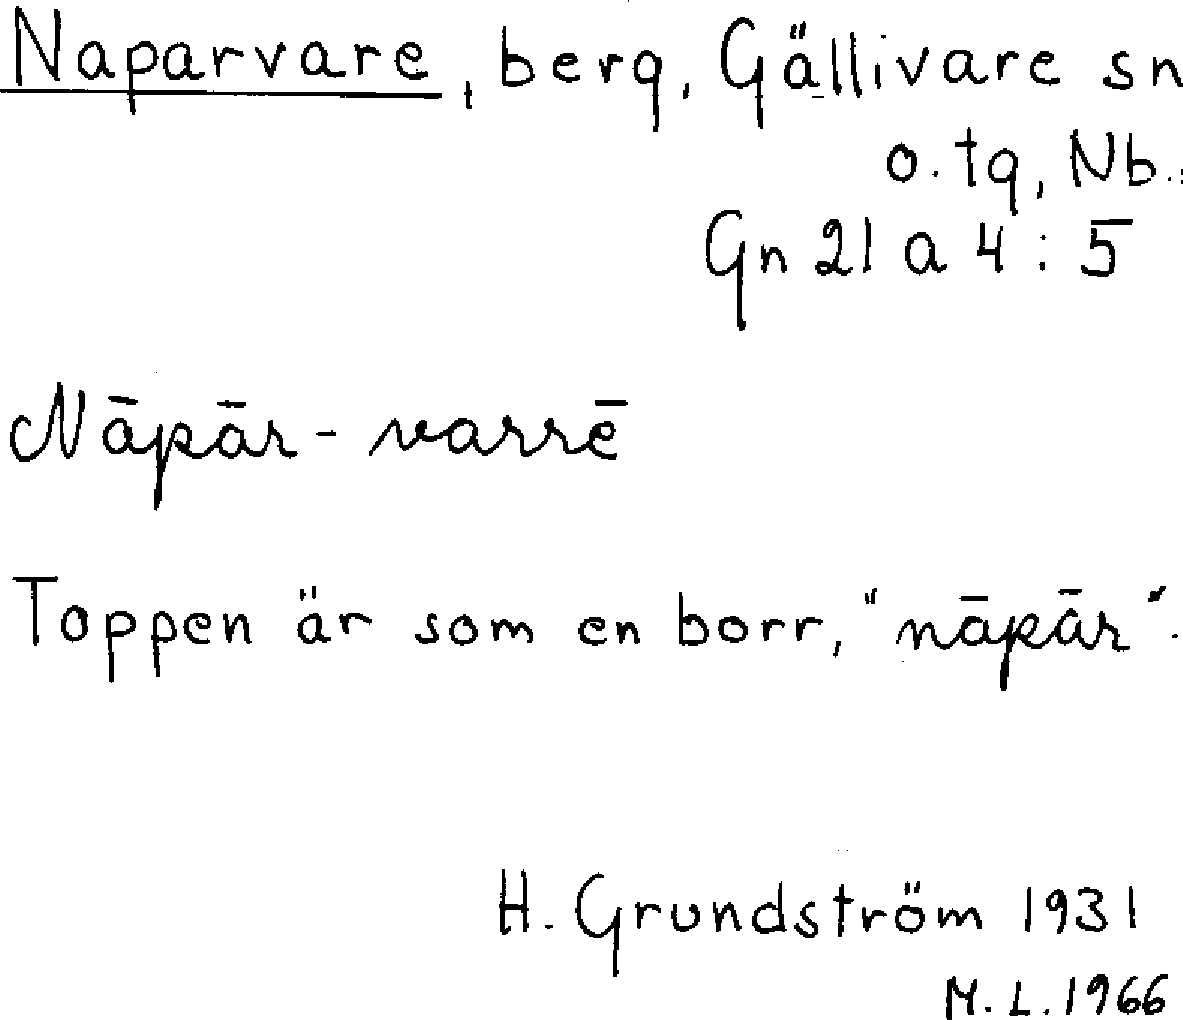 Naparvare, berg, Gällivare sn
o. tg, Nb.
Gn 21 a 4 : 5
Nāpār-varrē
Toppen är som en borr, "nāpār".
H. Grundström 1931
M. L. 1966